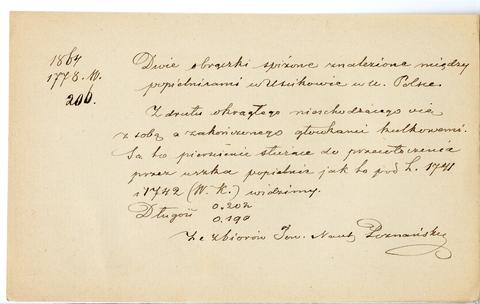 1864
1778. W.
206.
Dwie obrączki spiżowe znalezione między
popielnicami w w. Polsce.
Z drutu okrągłego nieschodzącego się
z sobą a zakończonego główkami kulkowemi.
Są to pierścienie służące do przewłoczenia
przez uszka popielnic jak to pod L. 1741
i 1742 (W. K.) widzimy.
Długość 0.202
0.190
Ze zbiorów Tow. Nauk. Poznańskie